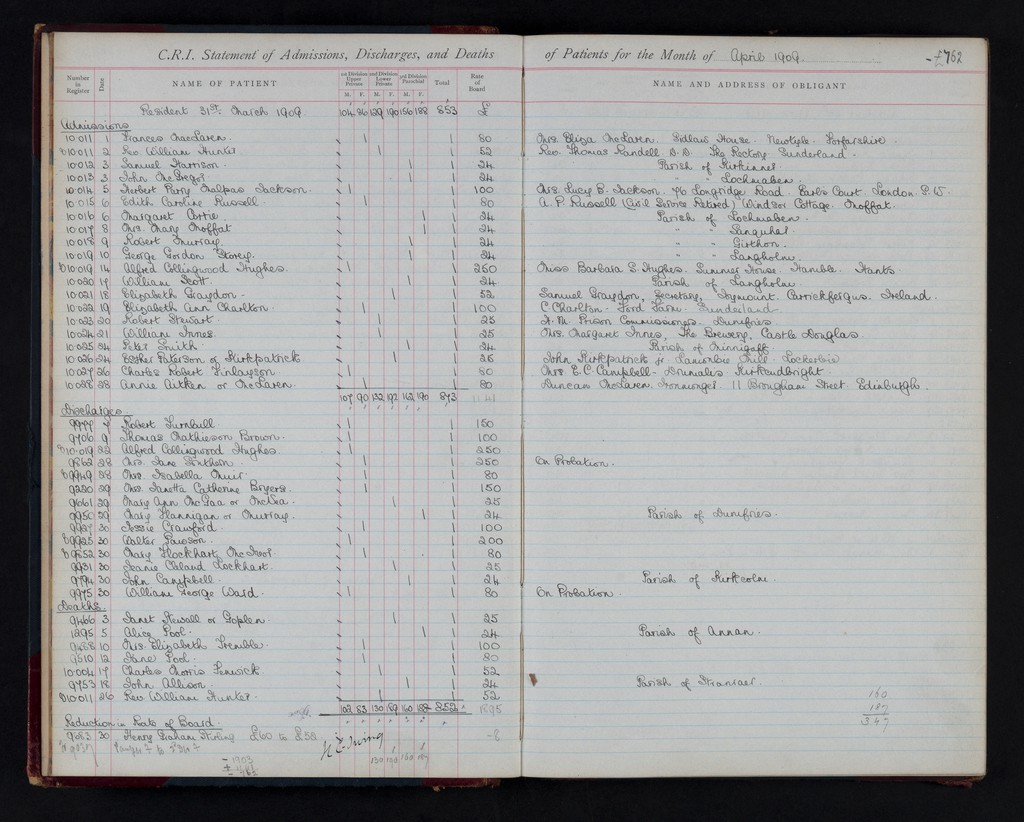 C.R.I. Statement of Admissions, Discharges, and Deaths of Patients for the Month of April 1909. -£762
Number in Register Date NAME OF PATIENT 1st Division Upper Private 2nd Division Lower Private 3rd Division Parochial Total Rate of Board NAME AND ADDRESS OF OBLIGANT
M. F. M. F. M. F.
Resident 31st March 1909. 104 86 129 190 156 188 853 £
Admissions
10 011 1 Frances MacLaren. 1 1 80 Mrs. Eliza MacLaren. Sidlaw House. Newtyle. Forfarshire
10011 2 Rev. William Hunter. 1 1 52 Rev. Thomas Randell. D.D. The Rectory Sunderland.
10012 3 Samuel Harrison. 1 1 24 Parish of Kirkinner.
10013 3 John McGregor. 1 1 24 " " Lochmaben.
10014 5 Herbert Parry Malpas Jackson. 1 1 100 Mrs. Lucy E. Jackson. 76 Longridge Road. Earls Court. London. S.W.
10015 6 Edith Caroline Russell. 1 1 80 A. P. Russell (Civil Service Retired) Windsor Cottage. Moffat.
10016 6 Margaret Corrie. 1 1 24 Parish of Lochmaben.
10017 8 Mrs. Mary Moffat 1 1 24 " " Sanquhar.
10018 9 Robert Murray. 1 1 24 " " Girthon.
10019 10 George Gordon Storey. 1 1 24 " " Langholm.
10019 14 Alfred Collingwood Hughes. 1 1 250 Miss Barbara S. Hughes. Summer House. Hamble. Hants
10020 17 William Scott. 1 1 24 Parish of Langholm.
10021 18 Elizabeth Graydon. 1 1 52 Samuel Graydon, Secretary, Joymount, Carrickfergus. Ireland.
10022 19 Elizabeth Ann Charlton. 1 1 100 C. Charlton. Ford Farm. Sunderland
10023 20 Robert Stewart. 1 1 25 H. M. Prison Commissioners. Dumfries
10024 21 William Innes. 1 1 25 Mrs. Margaret Innes, The Brewery, Castle Douglas.
10025 24 Peter Smith 1 1 24 Parish of Minnigaff.
10026 24 Esther Paterson or Kirkpatrick 1 1 25 John Kirkpatrick jr. Mill. Lockerbie
10027 26 Charles Robert Finlayson. 1 1 80 Mrs. E. C. Campbell. Kirkcudbright.
10028 28 Annie Aitken or MacLaren. 1 1 80 Duncan MacLaren. Ironmonger. 11 Brougham Street. Edinburgh.
107 90 132 192 162 190 873 1141
Discharges.
9777 7 Robert Turnbull 1 1 150
9706 9 Thomas Mathieson Brown. 1 1 100
10019 22 Alfred Collingwood Hughes. 1 1 250
9862 28 Mrs. Jane 1 1 250 On Probation.
9949 28 Mrs. Isabella Muir. 1 1 80
9280 29 Mrs. Janetta Catherine Bryers. 1 1 150
9661 29 Mary Ann McGaa or McVea. 1 1 25
9950 29 Mary Flannigan or Murray. 1 1 24 Parish of Dumfries.
9927 30 Jessie Crawford. 1 1 100
9925 30 Walter Pawson. 1 1 200
9852 30 Mary Flockhart McIvor. 1 1 80
9931 30 Jeanie Cleland Lockhart. 1 1 25
9794 30 John Campbell. 1 1 24 Parish of Kirkcolm.
9975 30 William George Ward. 1 1 80 On Probation.
Deaths.
9466 3 Janet Newall or Coplen. 1 1 25
1295 5 Alice Pool. 1 1 24 Parish of Annan.
9458 10 Mrs. Elizabeth Tremble. 1 1 100
9610 12 Jane Pool. 1 1 80
10004 17 Charles Morris Fenwick 1 1 52
9753 18 John Allison. 1 1 24 Parish of Stranraer.
10011 26 Rev. William Hunter. 1 1 52
102 83 130 189 160 188 852 1895
160
187
347
Reduction in Rate of Board.
9683 30 Henry Graham Stirling £60 to £58. -8
- 1903
130 160